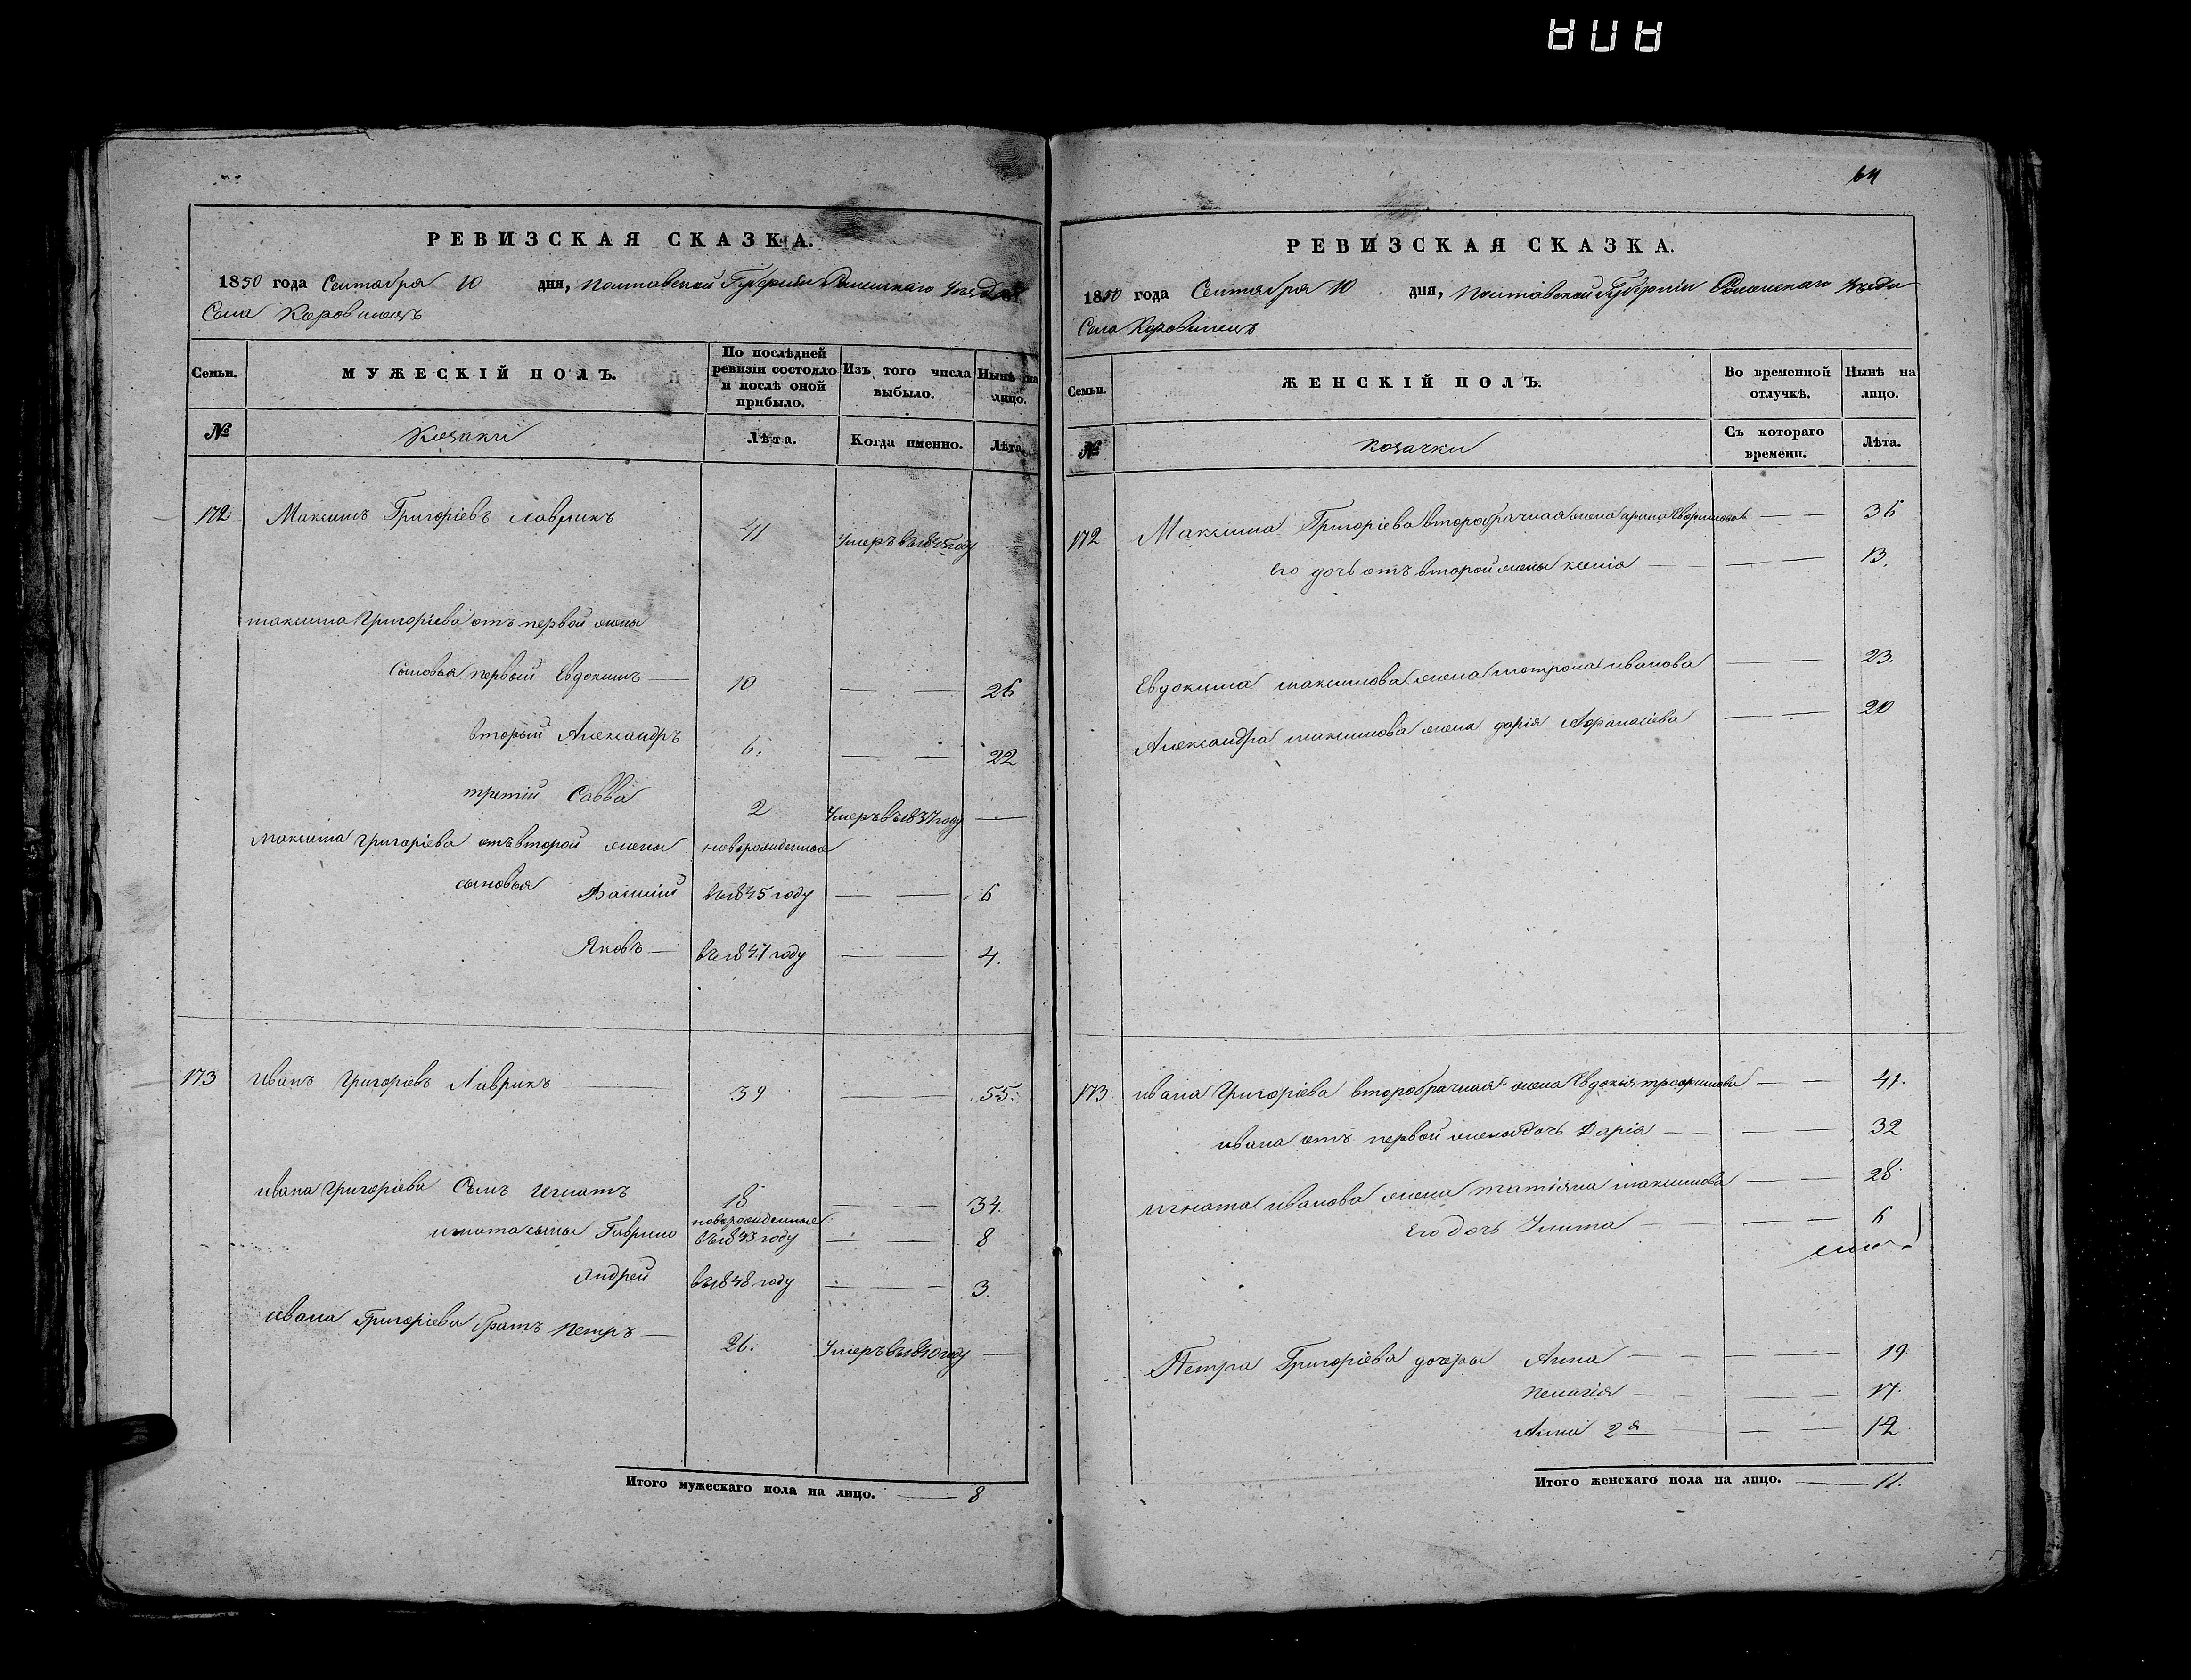 РЕВИЗСКАЯ СКАЗКА.
1850 года Сентября 10 дня, Полтавской Губернии Роменскаго уезда
Села Коровинецъ
Семьи.
МУЖЕСКІЙ ПОЛЪ.
По послѣдней ревизіи состояло и послѣ оной прибыло.
Изъ того числа выбыло.
Нынѣ на лицо.
№
Козаки
Лѣта.
Когда именно.
Лѣта.
172 Максимъ Григоріевъ Лаврикъ 41 Умеръ въ 1845 году —
Максима Григоріева отъ первой жены
Сыновья первый Евдокимъ — 10 — — 26
вторый Александръ 6. — — 22
третій Савва 2 Умеръ въ 1837 году —
Максима Григоріева отъ второй жены новорожденные
сыновья въ 1845 году — — 6
Яковъ — въ 1847 году — — 4.
173 Иванъ Григоріевъ Лаврикъ — 39 — — 55.
Ивана Григоріева Сынъ Игнатъ 18 — — 34.
Игната сыны Гаврило новорожденные въ 1843 году — — 8
Андрей въ 1848 году — — 3.
Ивана Григоріева братъ Петръ — 26. Умеръ въ 1840 году —
Итого мужескаго пола на лицо. — 8
64
РЕВИЗСКАЯ СКАЗКА.
1850 года Сентября 10 дня, Полтавской Губерніи Роменскаго уѣзда
Села Коровинецъ
Семьи.
ЖЕНСКІЙ ПОЛЪ.
Во временной отлучкѣ.
Нынѣ на лицо.
№
Козачки
Съ котораго времени.
Лѣта.
172 Максима Григоріева второбрачная жена — — 36
Его дочь отъ второй жены Ксенія — — — 13.
Евдокима Максимова жена Матрона Иванова — — 23.
Александра Максимова жена Дарія Афанасіева — — 20
173 Ивана Григоріева второбрачная жена Евдокія Трофимова — — 41.
Ивана отъ первой жены дочь Дарія — — — 32
Игната Иванова жена Татіяна Максимова — — 28
Его дочь Улита — — — 6
Петра Григоріева дочеры Анна — — — 19.
Пелагія — — — 17.
Анна 2я — — 12
Итого женскаго пола на лицо. — 11.